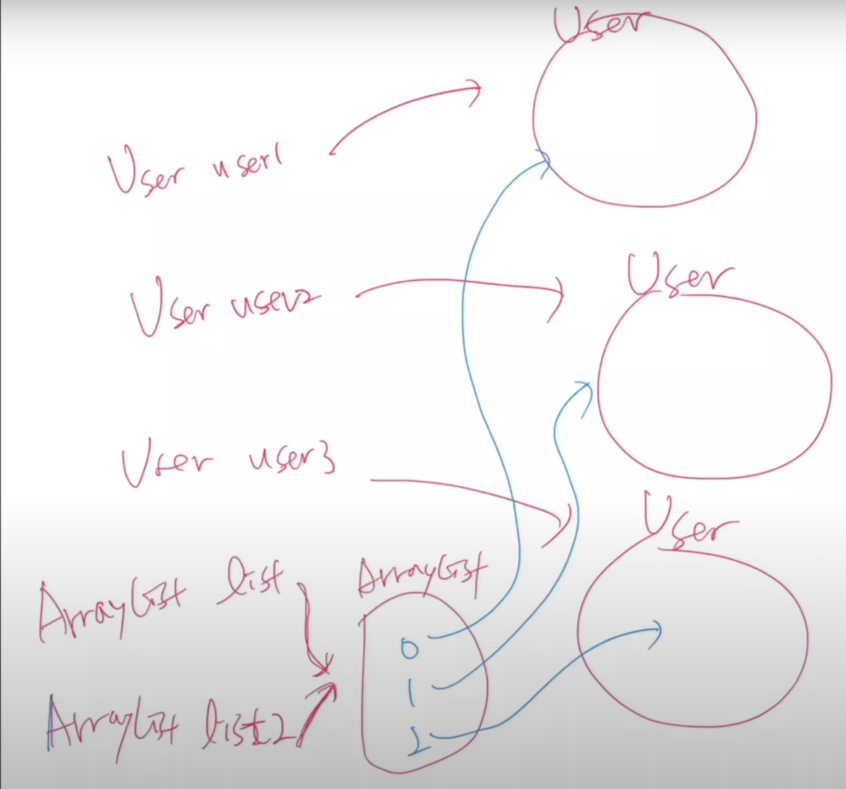 User
User user1
User user2
User
User user3
User
ArrayList list
ArrayList
0
1
2
ArrayList list2